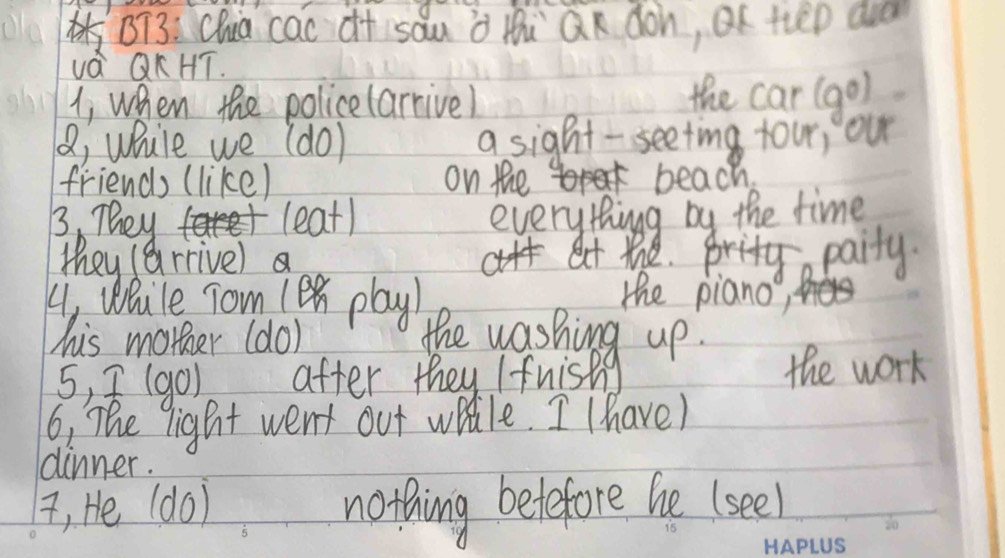 BT3: Chia các đt sau ở thì QK đơn, QK tiếp diễn
và QKHT.
1, when the police (arrive) the car (go)
2, While we (do) a sight-seeting tour, our
friends (like) on the beach.
3, They (eat) everything by the time
they (arrive) a at the. prity paity.
4, While Tom (play) the piano,
his mother (do) the washing up.
5, I (go) after they (fnish) the work
6, The light went out while. I (have)
dinner.
7, He (do) nothing betefore he (see)
0 5 10 15 20
HAPLUS